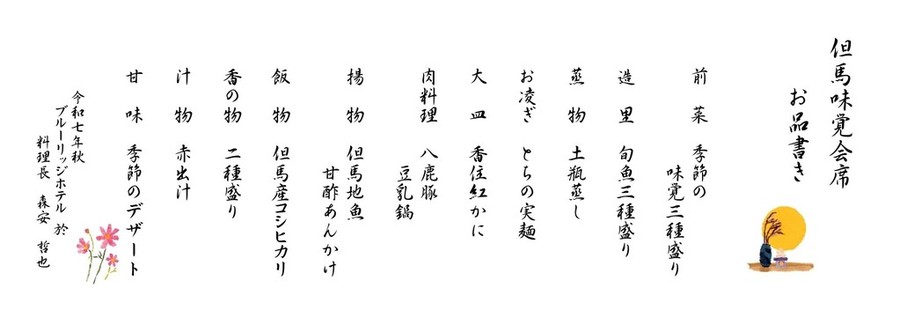 但馬味覚会席
お品書き
前菜 季節の
味覚三種盛り
造里 旬魚三種盛り
蒸物 土瓶蒸し
お凌ぎ とちの実麺
大皿 香住紅かに
肉料理 八鹿豚
豆乳鍋
揚物 但馬地魚
甘酢あんかけ
飯物 但馬産コシヒカリ
香の物 二種盛り
汁物 赤出汁
甘味 季節のデザート
令和七年秋
ブルーリッジホテル 於
料理長 森安 哲也